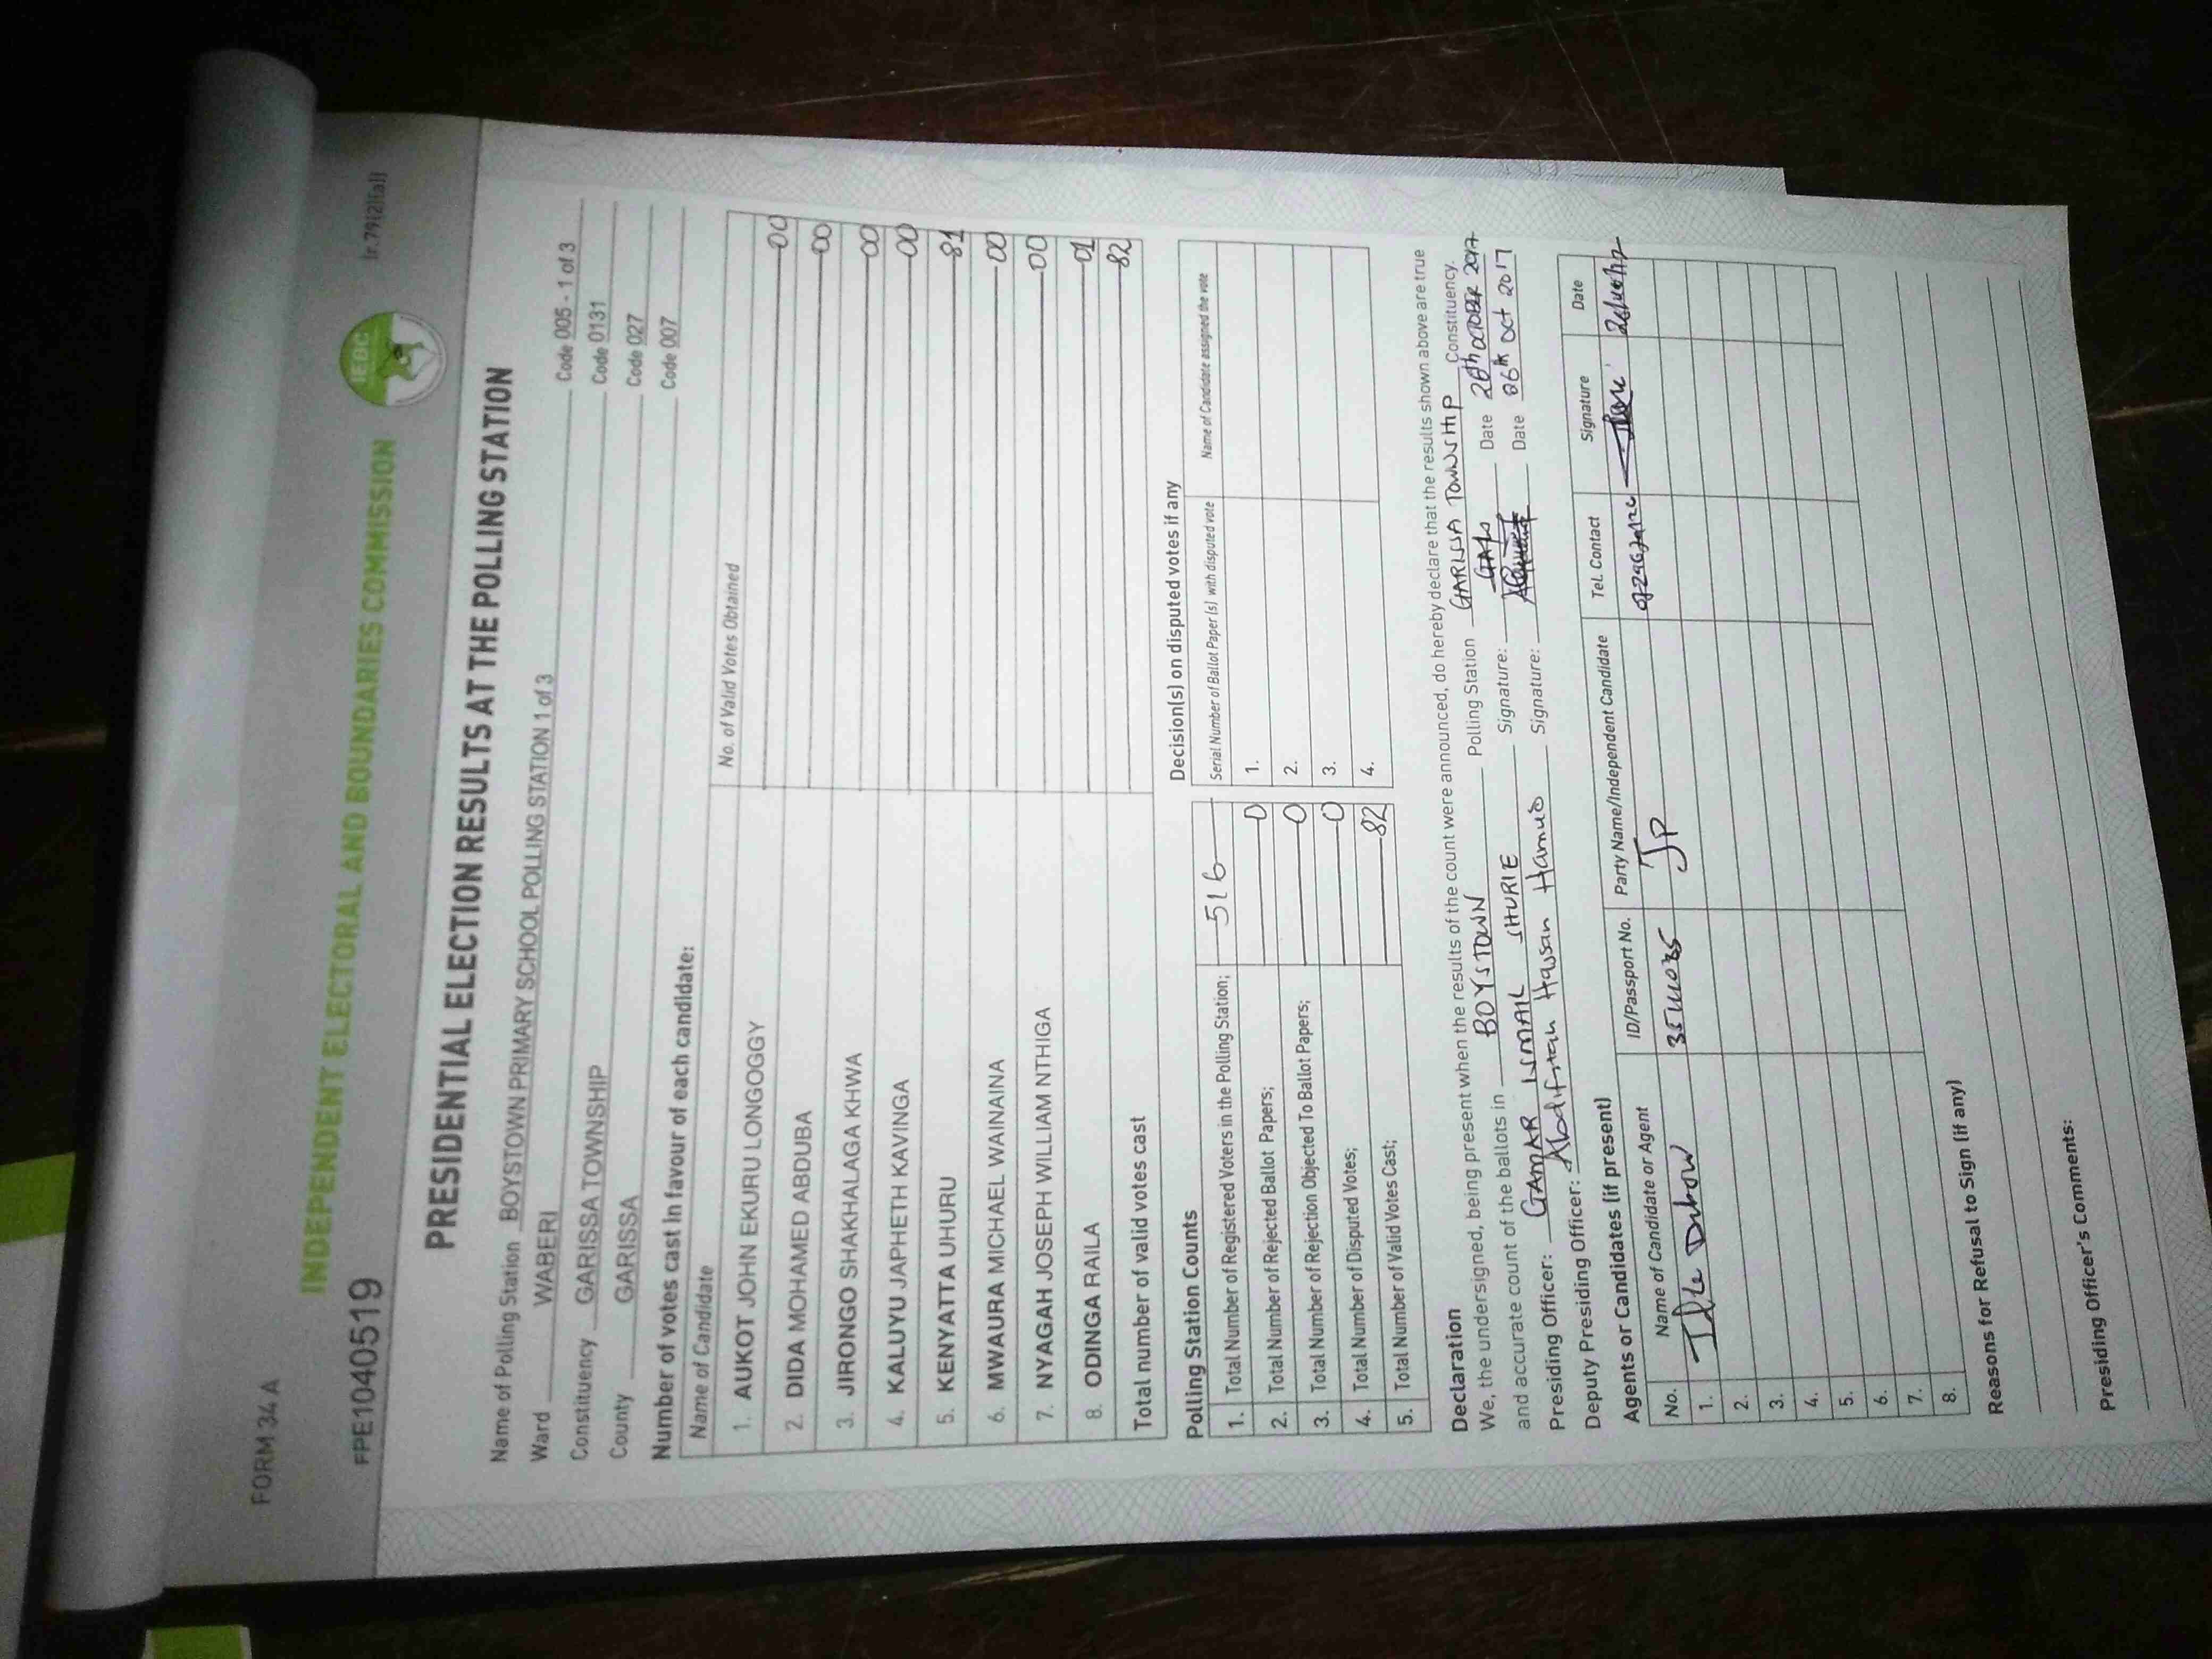 FORM 34 A
INDEPENDENT ELECTORAL AND BOUNDARIES COMMISSION
IEBC
(r.79(2)(a))
FPE1040519
PRESIDENTIAL ELECTION RESULTS AT THE POLLING STATION
Name of Polling Station BOYSTOWN PRIMARY SCHOOL POLLING STATION 1 of 3 Code 005 - 1 of 3
Ward WABERI Code 0131
Constituency GARISSA TOWNSHIP Code 027
County GARISSA Code 007
Number of votes cast in favour of each candidate:
Name of Candidate No. of Valid Votes Obtained
1. AUKOT JOHN EKURU LONGOGGY 00
2. DIDA MOHAMED ABDUBA 00
3. JIRONGO SHAKHALAGA KHWA 00
4. KALUYU JAPHETH KAVINGA 00
5. KENYATTA UHURU 81
6. MWAURA MICHAEL WAINAINA 00
7. NYAGAH JOSEPH WILLIAM NTHIGA 00
8. ODINGA RAILA 01
Total number of valid votes cast 82
Polling Station Counts
1. Total Number of Registered Voters in the Polling Station; 516
2. Total Number of Rejected Ballot Papers; 0
3. Total Number of Rejection Objected To Ballot Papers; 0
4. Total Number of Disputed Votes; 0
5. Total Number of Valid Votes Cast; 82
Decision(s) on disputed votes if any
Serial Number of Ballot Paper (s) with disputed vote Name of Candidate assigned the vote
1.
2.
3.
4.
Declaration
We, the undersigned, being present when the results of the count were announced, do hereby declare that the results shown above are true
and accurate count of the ballots in BOYSTOWN Polling Station GARISSA TOWNSHIP Constituency.
Presiding Officer: GAMAR ISMAIL SHURIE Signature: Date 26th OCTOBER 2017
Deputy Presiding Officer: Abdifatah Hassan Hamud Signature: Date 26th Oct 2017
Agents or Candidates (if present)
No. Name of Candidate or Agent ID/Passport No. Party Name/Independent Candidate Tel. Contact Signature Date
1. JP
2.
3.
4.
5.
6.
7.
8.
Reasons for Refusal to Sign (if any)
Presiding Officer's Comments: